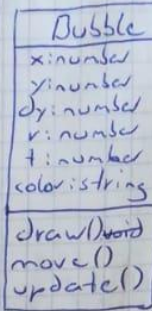 Bubble
x:number
y:number
dy:number
r:number
t:number
color:string
draw()void
move()
update()